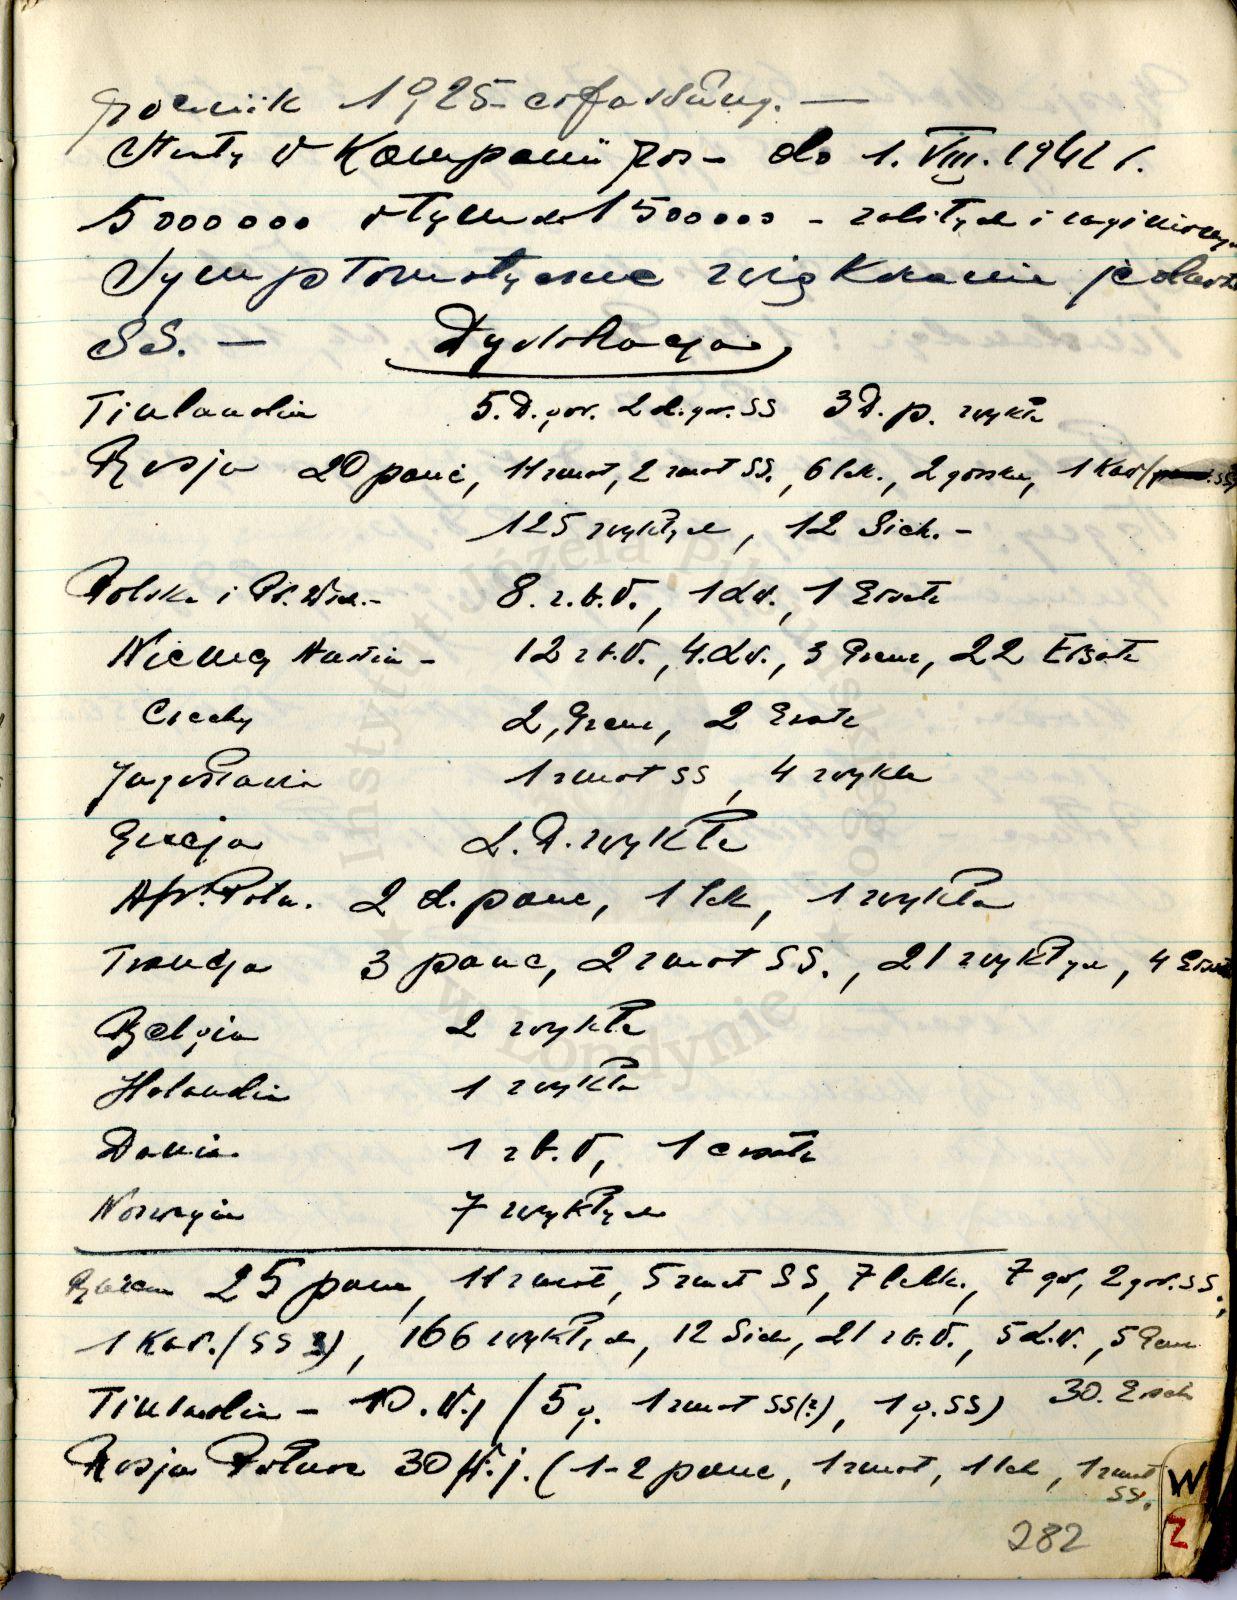 Rocznik 1925 erfassung. —
Straty w Kampanii Ros – do 1. VIII. 1942 r.
5000000 w tym do 1500000 – zabitych i zaginionych
Symptomatyczne zwiększenie jednostek
SS. – Dyslokacja
Finlandia 5. D. gór. 2 d. gór. SS 3 D. p. zwykłe
Rosja 20 panc, 11 zmot, 2 zmot SS., 6 lek., 2 górskie, 1 Kaw SS
125 zwykłych, 12 Sich. –
Polska i Pr. Wsch. – 8. z. b. W., 1 d W., 1 Ersatz
Niemcy Austria – 12 z b. W., 4. d W., 3 Panc, 22 Ersatz
Czechy 2, Grenz, 2 Ersatz
Jugosławia 1 zmot SS, 4 zwykłe
Grecja 2. D. zwykłe
Afr. Półn. 2 d. panc, 1 lek, 1 zwykła
Francja 3 panc, 2 zmot SS., 21 zwykłych, 4 Ersatz
Belgia 2 zwykłe
Holandia 1 zwykła
Dania 1 z b. W, 1 ersatz
Norwegia 7 zwykłych
Razem 25 panc, 11 zmot, 5 zmot SS, 7 lekk., 7 gór, 2 gór. SS.,
1 Kaw. (SS ?), 166 zwykłych, 12 Sich, 21 z b. W., 5 d. W.,
30. Ersatz
Finlandia – 10. W.j (5 g. 1 zmot SS(?), 1 g. SS)
Rosja Północ 30 W. j. (1-2 panc, 1 zmot, 1 lek, 1 zmot
SS.
282
W
Z
Instytut Józefa Piłsudskiego
w Londynie